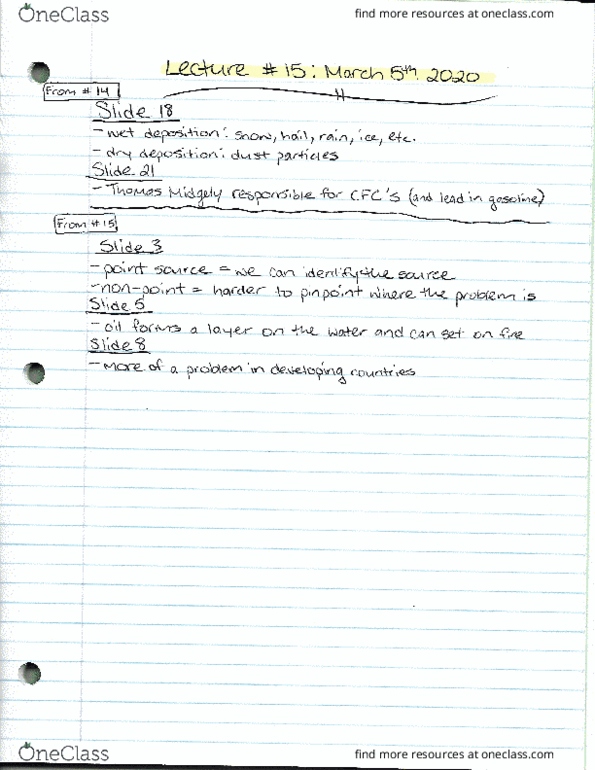 OneClass
find more resources at oneclass.com
Lecture # 15: March 5th 2020
From # 14
Slide 18
- wet deposition: snow, hail, rain, ice, etc.
- dry deposition: dust particles
Slide 21
- Thomas Midgely responsible for CFC's (and lead in gasoline)
From # 15
Slide 3
- point source = we can identify the source
- non-point = harder to pinpoint where the problem is
Slide 5
- oil forms a layer on the water and can set on fire
Slide 8
- More of a problem in developing countries
OneClass
find more resources at oneclass.com